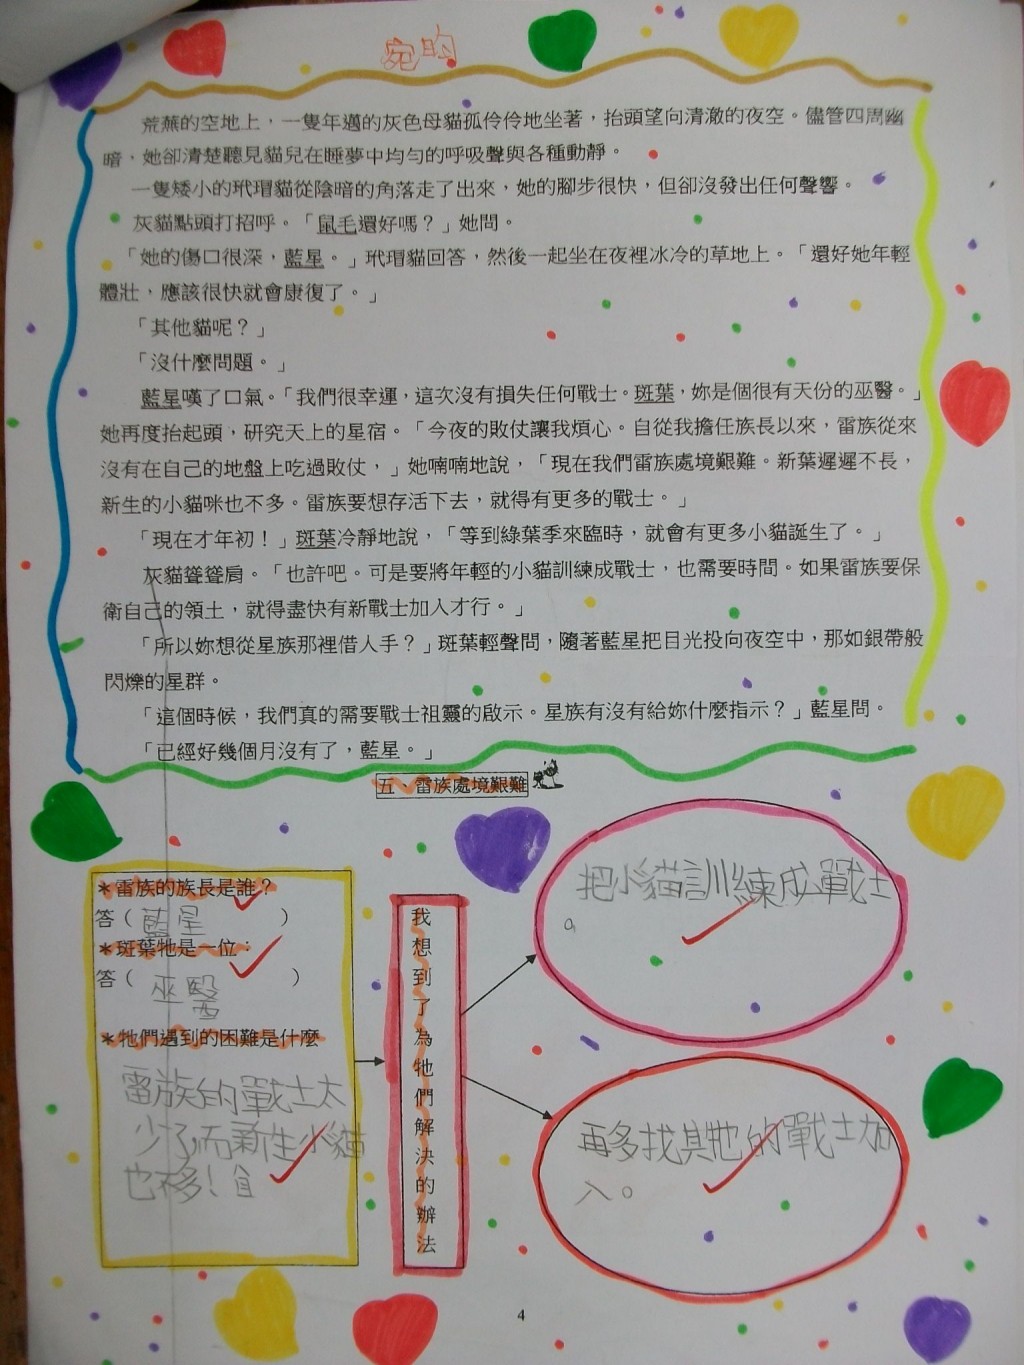 宛昀
荒蕪的空地上，一隻年邁的灰色母貓孤伶伶地坐著，抬頭望向清澈的夜空。儘管四周幽
暗，她卻清楚聽見貓兒在睡夢中均勻的呼吸聲與各種動靜。
一隻矮小的玳瑁貓從陰暗的角落走了出來，她的腳步很快，但卻沒發出任何聲響。
灰貓點頭打招呼。「鼠毛還好嗎？」她問。
「她的傷口很深，藍星。」玳瑁貓回答，然後一起坐在夜裡冰冷的草地上。「還好她年輕
體壯，應該很快就會康復了。」
「其他貓呢？」
「沒什麼問題。」
藍星嘆了口氣。「我們很幸運，這次沒有損失任何戰士。斑葉，妳是個很有天份的巫醫。」
她再度抬起頭，研究天上的星宿。「今夜的敗仗讓我煩心。自從我擔任族長以來，雷族從來
沒有在自己的地盤上吃過敗仗，」她喃喃地說，「現在我們雷族處境艱難。新葉遲遲不長，
新生的小貓咪也不多。雷族要想存活下去，就得有更多的戰士。」
「現在才年初！」斑葉冷靜地說，「等到綠葉季來臨時，就會有更多小貓誕生了。」
灰貓聳聳肩。「也許吧。可是要將年輕的小貓訓練成戰士，也需要時間。如果雷族要保
衛自己的領土，就得盡快有新戰士加人才行。」
「所以妳想從星族那裡借人手？」斑葉輕聲問，隨著藍星把目光投向夜空中，那如銀帶般
閃爍的星群。
「這個時候，我們真的需要戰士祖靈的啟示。星族有沒有給妳什麼指示？」藍星問。
「已經好幾個月沒有了，藍星。」
五、雷族處境艱難
＊雷族的族長是誰？
答（藍星）
＊斑葉牠是一位：
答（巫醫）
＊牠們遇到的困難是什麼
雷族的戰士太
少了,而新生小貓
也不多!
我想到了為牠們解決的辦法
把小貓訓練成戰士
。
再多找其他的戰士加
入。
4